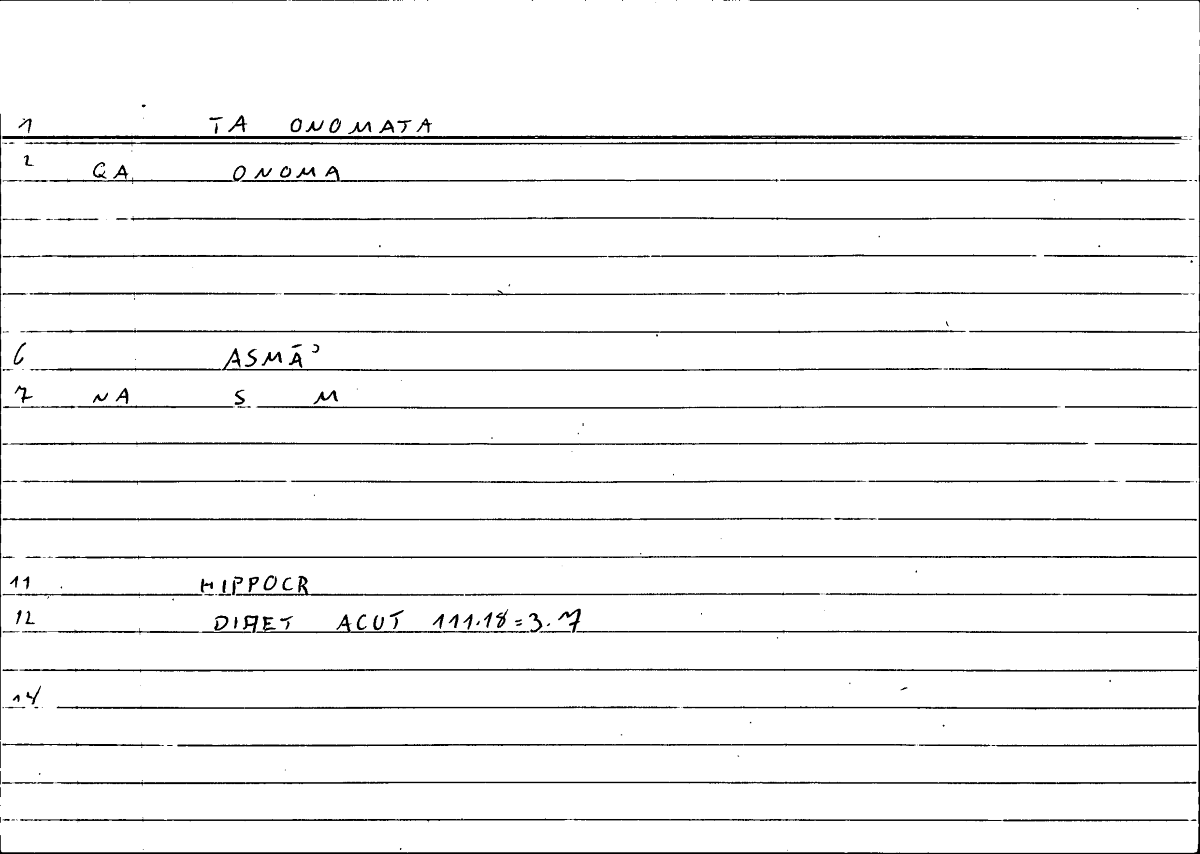 1 TA ONOMATA
2 GA ONOMA
6 ASMĀʾ
7 NA S M
11 HIPPOCR
12 DIAET ACUT 111.18=3.7
14